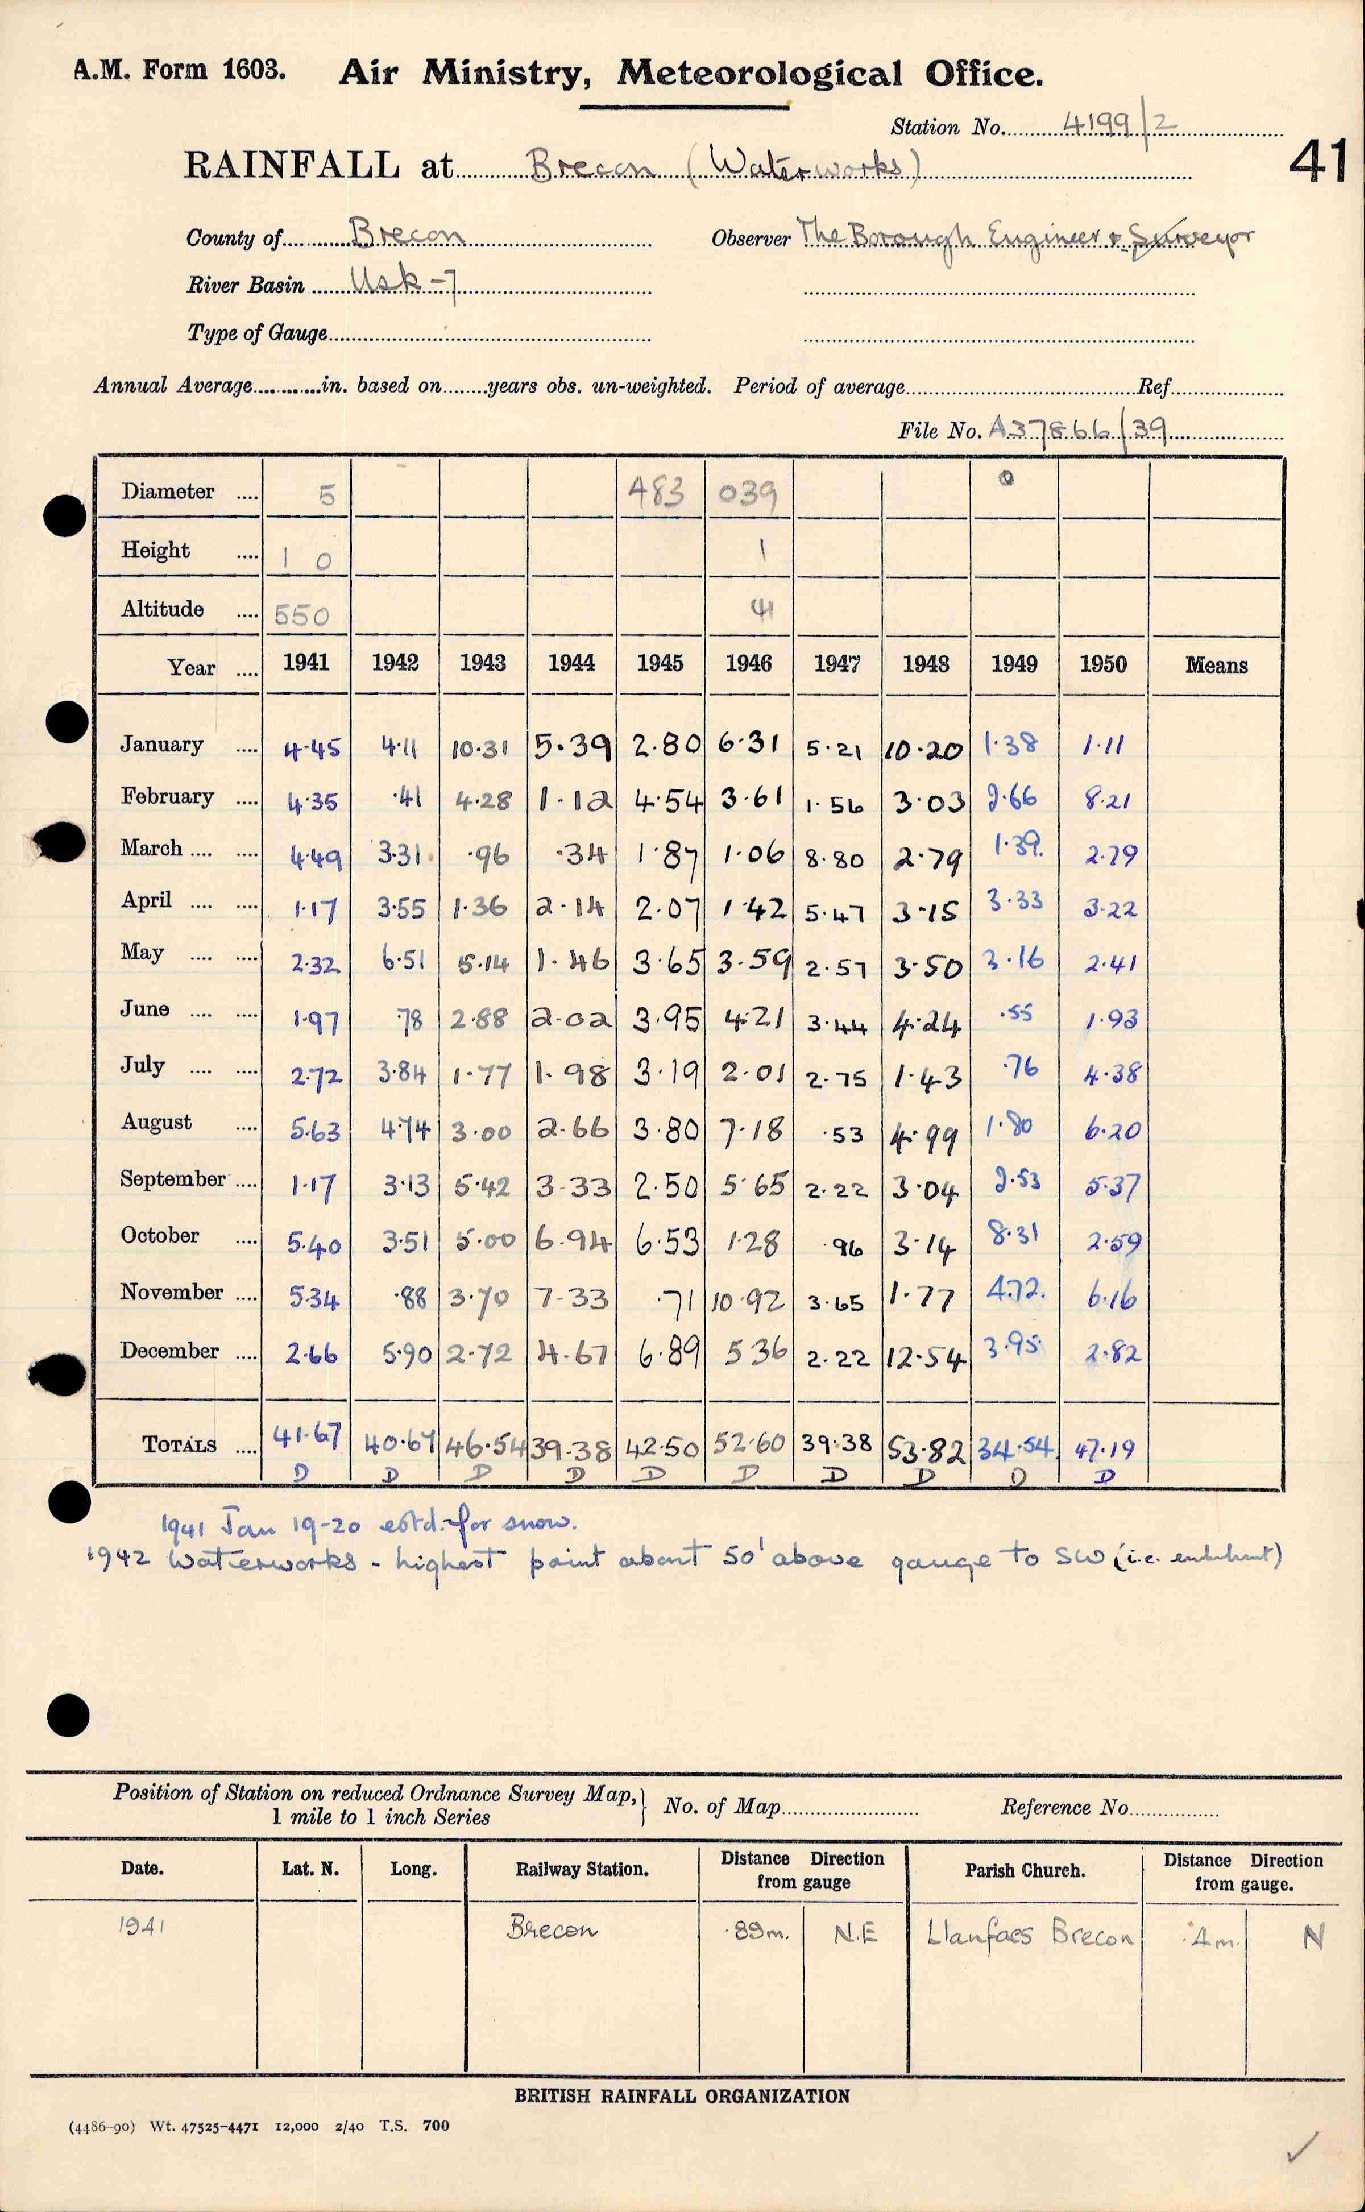 A.M. Form 1603. Air Ministry, Meteorological Office.
Station No. 4199/2
41
RAINFALL at Brecon (Waterworks)
County of Brecon Observer The Borough Engineer & Surveyor
River Basin Usk-7
Type of Gauge
Annual Average in. based on years obs. un-weighted. Period of average Ref.
File No. A37866/39
Diameter 5 483 039 0
Height 1 0 1
Altitude 550 41
Year 1941 1942 1943 1944 1945 1946 1947 1948 1949 1950 Means
January 4.45 4.11 10.31 5.39 2.80 6.31 5.21 10.20 1.38 1.11
February 4.35 .41 4.28 1.12 4.54 3.61 1.56 3.03 2.66 8.21
March 4.49 3.31 .96 .34 1.87 1.06 8.80 2.79 1.39 2.79
April 1.17 3.55 1.36 2.14 2.07 1.42 5.47 3.15 3.33 3.22
May 2.32 6.51 5.14 1.46 3.65 3.59 2.57 3.50 3.16 2.41
June 1.97 .78 2.88 2.02 3.95 4.21 3.44 4.24 .55 1.93
July 2.72 3.84 1.77 1.98 3.19 2.01 2.75 1.43 .76 4.38
August 5.63 4.74 3.00 2.66 3.80 7.18 .53 4.99 1.80 6.20
September 1.17 3.13 5.42 3.33 2.50 5.65 2.22 3.04 2.53 5.37
October 5.40 3.51 5.00 6.94 6.53 1.28 .96 3.14 8.31 2.59
November 5.34 .88 3.70 7.33 .71 10.92 3.65 1.77 4.72. 6.16
December 2.66 5.90 2.72 4.67 6.89 5 36 2.22 12.54 3.95 2.82
TOTALS 41.67 40.67 46.54 39.38 42.50 52.60 39.38 53.82 34.54 47.19
D D D D D D D D D D
1941 Jan 19-20 estd. for snow.
1942 Waterworks - highest point about 50' above gauge to SW (i.e.
Position of Station on reduced Ordnance Survey Map, 1 mile to 1 inch Series } No. of Map Reference No.
Date. Lat. N. Long. Railway Station. Distance Direction from gauge Parish Church. Distance Direction from gauge.
1941 Brecon .89m. N.E Llanfaes Brecon .4m. N
BRITISH RAINFALL ORGANIZATION
(4486-90) Wt. 47525-4471 12,000 2/40 T.S. 700